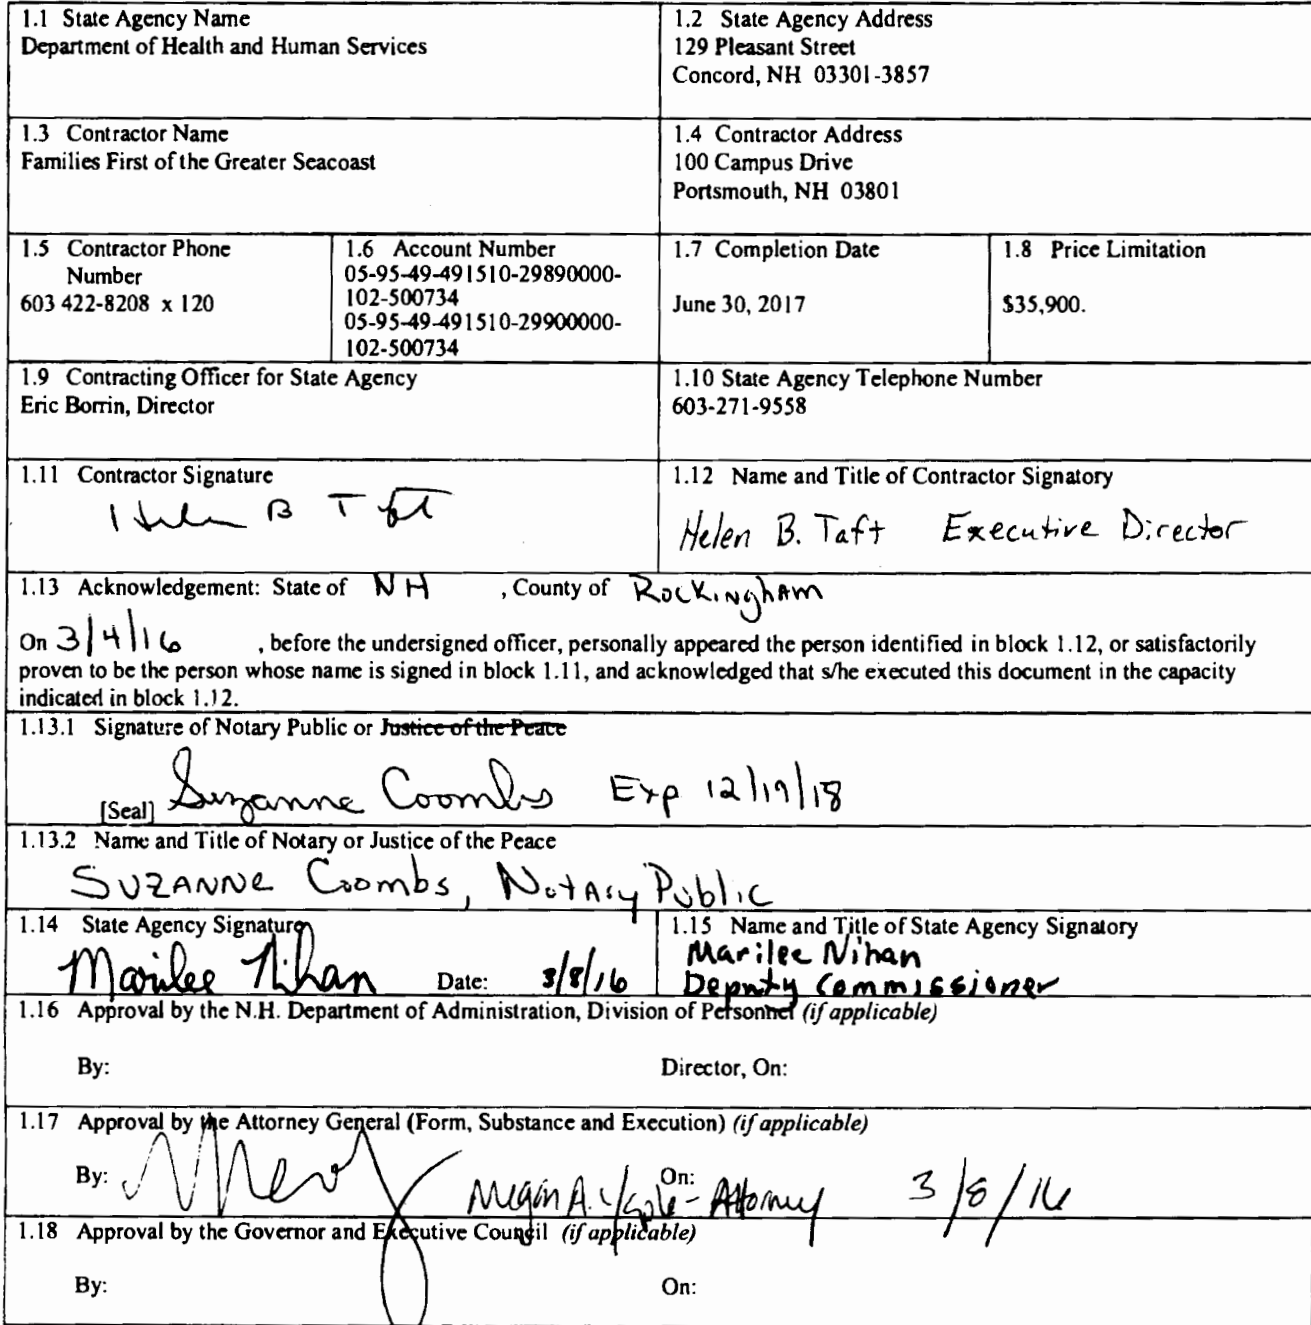 1.1 State Agency Name
Department of Health and Human Services
1.2 State Agency Address
129 Pleasant Street
Concord, NH 03301-3857
1.3 Contractor Name
Families First of the Greater Seacoast
1.4 Contractor Address
100 Campus Drive
Portsmouth, NH 03801
1.5 Contractor Phone
Number
603 422-8208 x 120
1.6 Account Number
05-95-49-491510-29890000-
102-500734
05-95-49-491510-29900000-
102-500734
1.7 Completion Date
June 30, 2017
1.8 Price Limitation
$35,900.
1.9 Contracting Officer for State Agency
Eric Borrin, Director
1.10 State Agency Telephone Number
603-271-9558
1.11 Contractor Signature
Helen B Taft
1.12 Name and Title of Contractor Signatory
Helen B. Taft Executive Director
1.13 Acknowledgement: State of NH , County of Rockingham
On 3/4/16 , before the undersigned officer, personally appeared the person identified in block 1.12, or satisfactorily
proven to be the person whose name is signed in block 1.11, and acknowledged that s/he executed this document in the capacity
indicated in block 1.12.
1.13.1 Signature of Notary Public or Justice of the Peace
[Seal] Suzanne Coombs Exp 12/19/18
1.13.2 Name and Title of Notary or Justice of the Peace
Suzanne Coombs, Notary Public
1.14 State Agency Signature
Marilee Nihan Date: 3/8/16
1.15 Name and Title of State Agency Signatory
Marilee Nihan
Deputy Commissioner
1.16 Approval by the N.H. Department of Administration, Division of Personnel (if applicable)
By: Director, On:
1.17 Approval by the Attorney General (Form, Substance and Execution) (if applicable)
By: Megan A. On: - Attorney 3/8/16
1.18 Approval by the Governor and Executive Council (if applicable)
By: On: